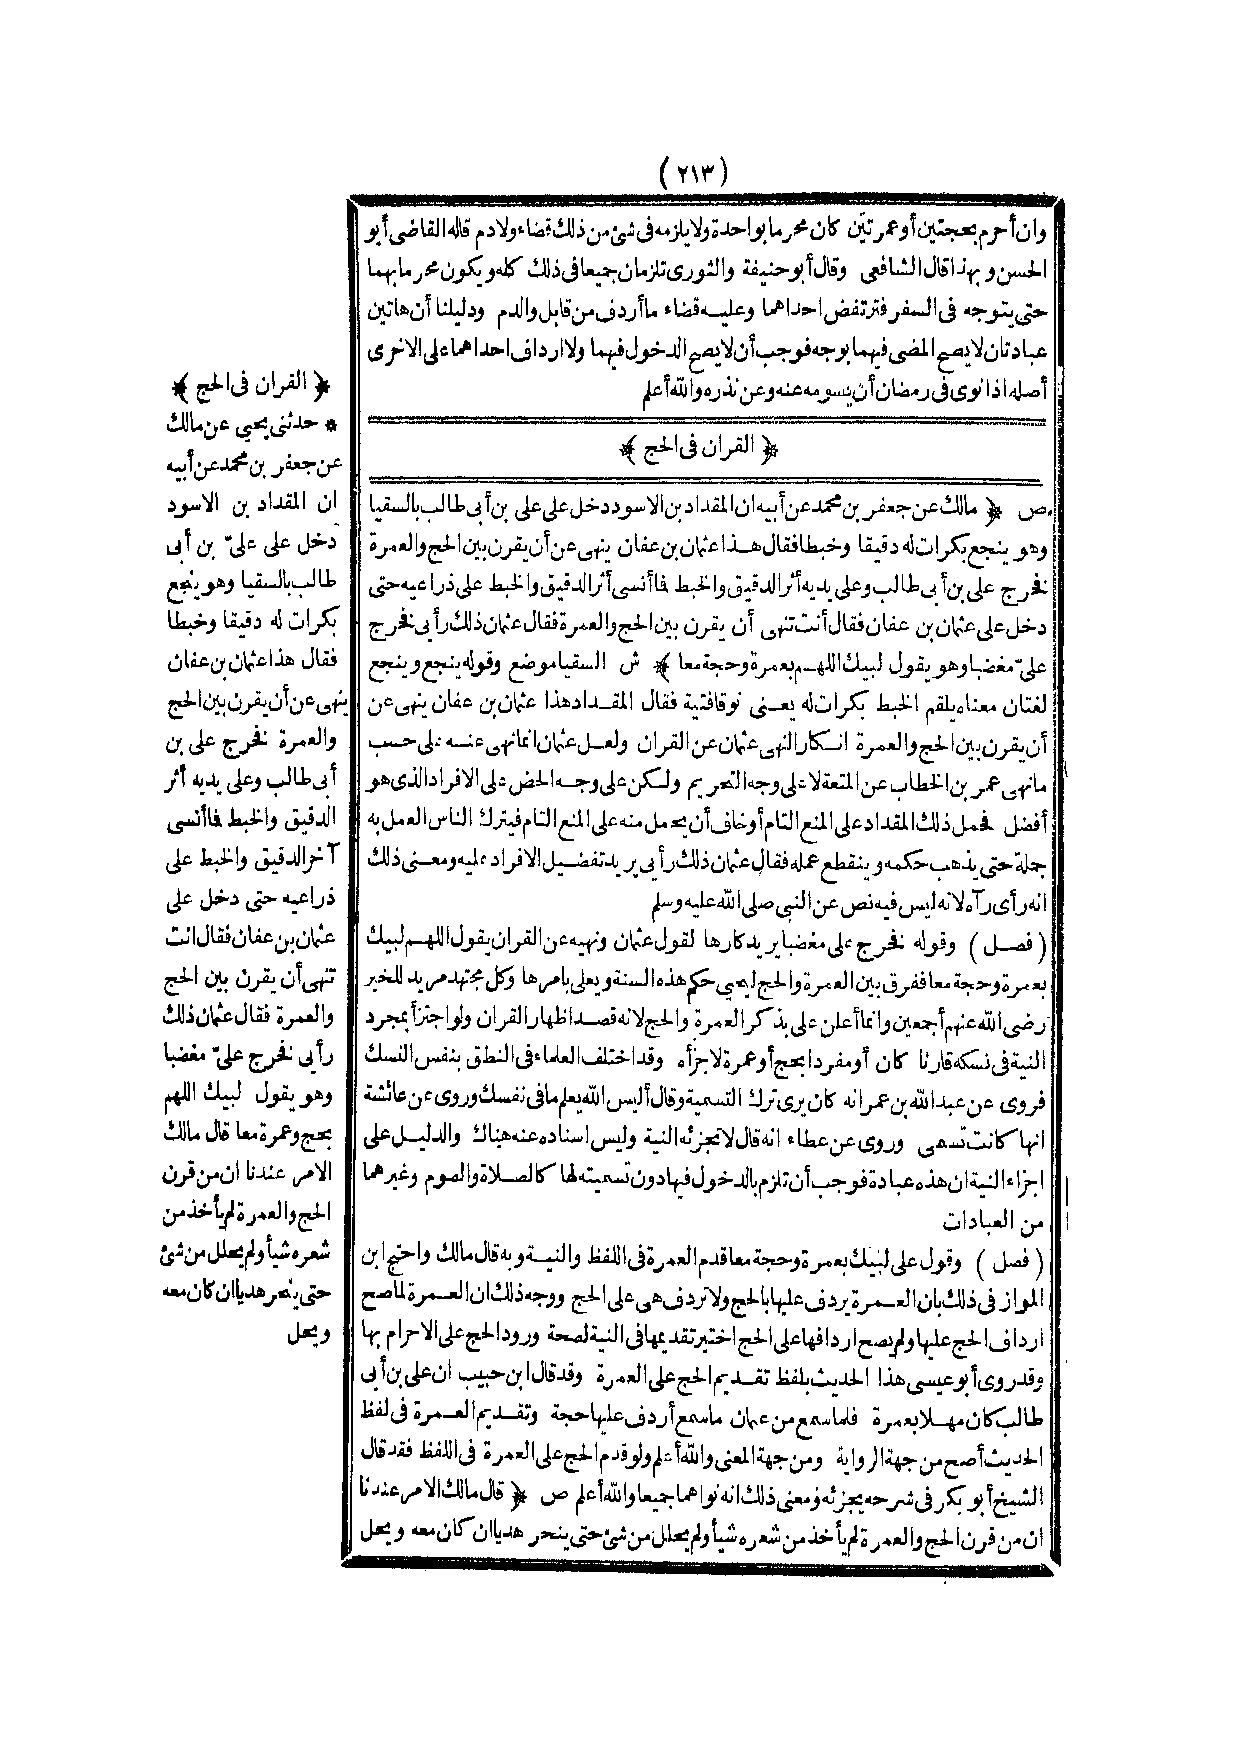 (٢١٣)
وان أحرم بحجتين أو عمرتين كان محرما بواحدة ولا يلزمه فى شئ من ذلك قضاء ولا دم قاله القاضى أبو
الحسن وبهذا قال الشافعى وقال أبو حنيفة والثورى تلزمان جميعا فى ذلك كله ويكون محرما بهما
حتى يتوجه فى السفر فترتفض احداهما وعليه قضاء ما أردف من قابل والدم ودليلنا أن هاتين
عبادتان لا يصح المضى فيهما بوجه فوجب أن لا يصح الدخول فيهما ولا ارداف احداهما على الاخرى
أصله اذا نوى فى رمضان أن يسومه عنه وعن نذره والله أعلم
﴿ القران فى الحج ﴾
ص ﴿ مالك عن جعفر بن محمد عن أبيه ان المقداد بن الاسود دخل على على بن أبى طالب بالسقيا
وهو ينجع بكرات له دقيقا وخبطا فقال هذا عثمان بن عفان ينهى عن أن يقرن بين الحج والعمرة
فخرج على بن أبى طالب وعلى يديه أثر الدقيق والخبط فما أنسى أثر الدقيق والخبط على ذراعيه حتى
دخل على عثمان بن عفان فقال أنت تنهى أن يقرن بين الحج والعمرة فقال عثمان ذلك رأيى فخرج
علىّ مغضبا وهو يقول لبيك اللهم بعمرة وحجة معا ﴾ ش السقيا موضع وقوله ينجع وينجع
لغتان معناه يلقم الخبط بكرات له يعنى نوقا فتية فقال المقداد هذا عثمان بن عفان ينهى عن
أن يقرن بين الحج والعمرة انكار النهى عثمان عن القران ولعل عثمان انما نهى عنه على حسب
ما نهى عمر بن الخطاب عن المتعة لا على وجه التحريم ولكن على وجه الحض على الافراد الذى هو
أفضل فحمل ذلك المقداد على المنع التام أو خاف أن يحمل منه على المنع التام فيترك الناس العمل به
جملة حتى يذهب حكمه وينقطع عمله فقال عثمان ذلك رأيى يريد تفضيل الافراد عليه ومعنى ذلك
انه رأى رآه لانه ليس فيه نص عن النبى صلى الله عليه وسلم
(فصل) وقوله فخرج على مغضبا يريد كارها لقول عثمان ونهيه عن القران يقول اللهم لبيك
بعمرة وحجة معا ففرق بين العمرة والحج ليحيى حكم هذه السنة ويعلى بامرها وكل مجتهد مريد للخير
رضى الله عنهم أجمعين وانما أعلن على بذكر العمرة والحج لانه قصد اظهار القران ولو اجتزأ بمجرد
النية فى نسكه قارنا كان أو مفردا بحج أو عمرة لاجزأه وقد اختلف العلماء فى النطق بنفس النسك
فروى عن عبد الله بن عمر انه كان يرى ترك التسمية وقال أليس الله يعلم ما فى نفسك وروى عن عائشة
انها كانت تسمى وروى عن عطاء انه قال لا تجزئه النية وليس اسناده عنه هناك والدليل على
اجزاء النية ان هذه عبادة فوجب أن تلزم بالدخول فيها دون تسميته لها كالصلاة والصوم وغيرهما
من العبادات
(فصل) وقول على لبيك بعمرة وحجة معا قدم العمرة فى اللفظ والنية وبه قال مالك واحتج ابن
المواز فى ذلك بان العمرة يردف عليها بالحج ولا تردف هى على الحج ووجه ذلك ان العمرة لما صح
ارداف الحج عليها ولم يصح اردافها على الحج اختير تقديمها فى النية لصحة ورود الحج على الاحرام بها
وقد روى أبو عيسى هذا الحديث بلفظ تقديم الحج على العمرة وقد قال ابن حبيب ان على بن أبى
طالب كان مهلا بعمرة فلما سمع من عثمان ما سمع أردف عليها حجة وتقديم العمرة فى لفظ
الحديث أصح من جهة الرواية ومن جهة المعنى والله أعلم ولو قدم الحج على العمرة فى اللفظ فقد قال
الشيخ أبو بكر فى شرحه يجزئه ومعنى ذلك انه نواهما جميعا والله أعلم ص ﴿ قال مالك الامر عندنا
ان من قرن الحج والعمرة لم يأخذ من شعره شيأ ولم يحلل من شئ حتى ينحر هديا ان كان معه ويحل
﴿ القران فى الحج ﴾
* حدثنى يحيى عن مالك
عن جعفر بن محمد عن أبيه
ان المقداد بن الاسود
دخل على علىّ بن أبى
طالب بالسقيا وهو ينجع
بكرات له دقيقا وخبطا
فقال هذا عثمان بن عفان
ينهى عن أن يقرن بين الحج
والعمرة فخرج على بن
أبى طالب وعلى يديه أثر
الدقيق والخبط فما أنسى
آخر الدقيق والخبط على
ذراعيه حتى دخل على
عثمان بن عفان فقال انت
تنهى أن يقرن بين الحج
والعمرة فقال عثمان ذلك
رأيى فخرج علىّ مغضبا
وهو يقول لبيك اللهم
بحج وعمرة معا قال مالك
الامر عندنا ان من قرن
الحج والعمرة لم يأخذ من
شعره شيأ ولم يحلل من شئ
حتى ينحر هديا ان كان معه
ويحل